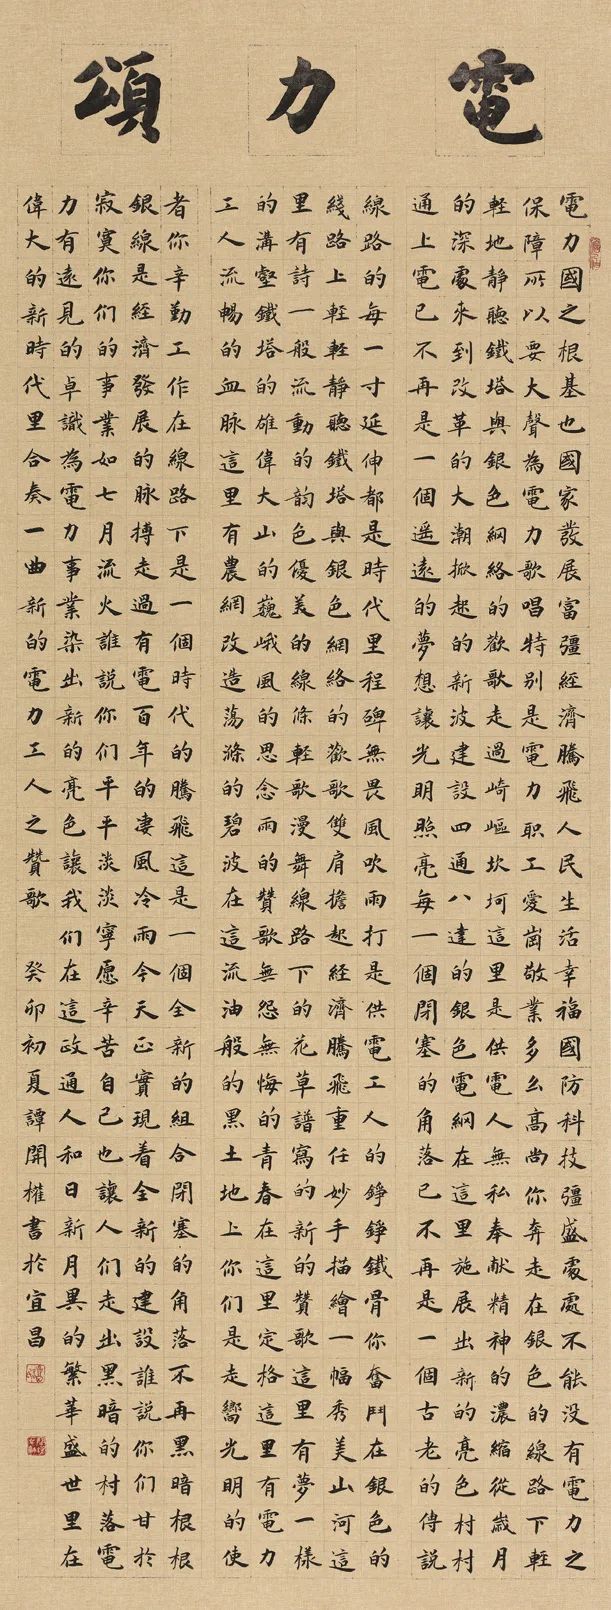 電力頌
電力國之根基也國家發展富彊經濟騰飛人民生活幸福國防科技彊盛處處不能没有電力之
保障所以要大聲為電力歌唱特别是電力职工愛崗敬業多么高尚你奔走在銀色的線路下輕
輕地静聽鐵塔與銀色網絡的歡歌走過崎嶇坎坷這里是供電人無私奉献精神的濃縮從歲月
的深處來到改革的大潮掀起的新波建設四通八達的銀色電網在這里施展出新的亮色村村
通上電已不再是一個遥遠的夢想讓光明照亮每一個閉塞的角落已不再是一個古老的傳説
線路的每一寸延伸都是時代里程碑無畏風吹雨打是供電工人的錚錚鐵骨你奮鬥在銀色的
綫路上輕輕静聽鐵塔與銀色網絡的歡歌雙肩擔起經濟騰飛重任妙手描繪一幅秀美山河這
里有詩一般流動的韵色優美的線條輕歌漫舞線路下的花草譜寫的新的贊歌這里有夢一樣
的溝壑鐵塔的雄偉大山的巍峨風的思念雨的贊歌無怨無悔的青春在這里定格這里有電力
工人流暢的血脉這里有農網改造蕩滌的碧波在這流油般的黑土地上你们是走嚮光明的使
者你辛勤工作在線路下是一個時代的騰飛這是一個全新的組合閉塞的角落不再黑暗根根
銀線是經濟發展的脉搏走過有電百年的凄風冷雨今天正實現着全新的建設誰説你们甘於
寂寞你们的事業如七月流火誰説你们平平淡淡寧愿辛苦自己也讓人们走出黑暗的村落電
力有遠見的卓識為電力事業染出新的亮色讓我们在這政通人和日新月異的繁華盛世里在
偉大的新時代里合奏一曲新的電力工人之贊歌 癸卯初夏譚開權書於宜昌